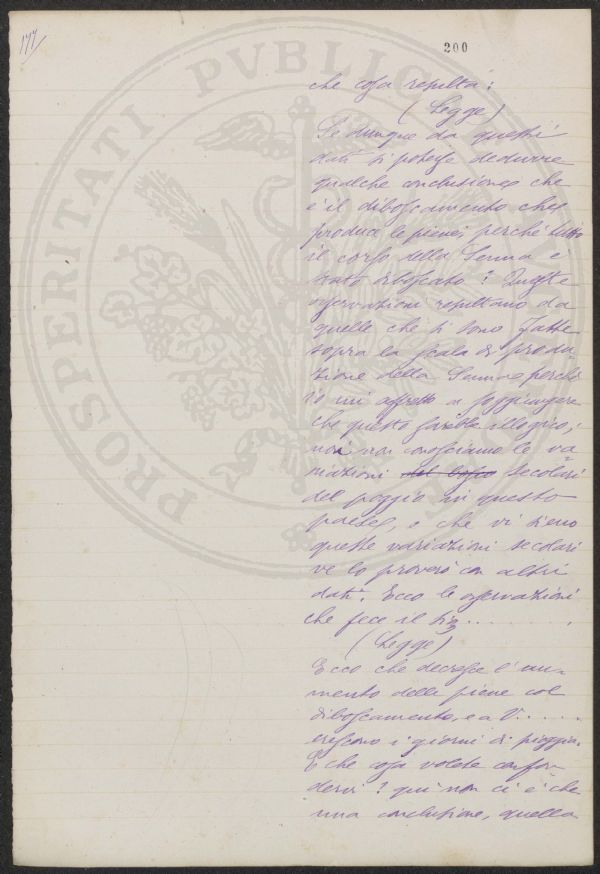 177/
200
PROSPERITATI PVBLICAE
che cosa resulta:
(Legge)
Se dunque da questi
dati si potesse dedurre
qualche conclusione, è che
è il diboscamento che
produce le piene; perchè tutto
il corso della Senna è
stato diboscato? Queste
osservazioni resultano da
quelle che si sono fatte
sopra la scala di produ-
zione della Senna perchè
io mi affretto a soggiungere
che questo sarebbe illogico;
noi non conosciamo le va-
riazioni del bosco secolari
del poggio in questo
paese, e che vi sieno
queste variazioni secolari
ve lo proverò con altri
dati. Ecco le osservazioni
che fece il
(Legge)
Ecco che decresce l'au-
mento delle piene col
diboscamento, e a V.....
crescono i giorni di pioggia.
E che cosa volete confon-
dervi? qui non ci è che
una conclusione, quella